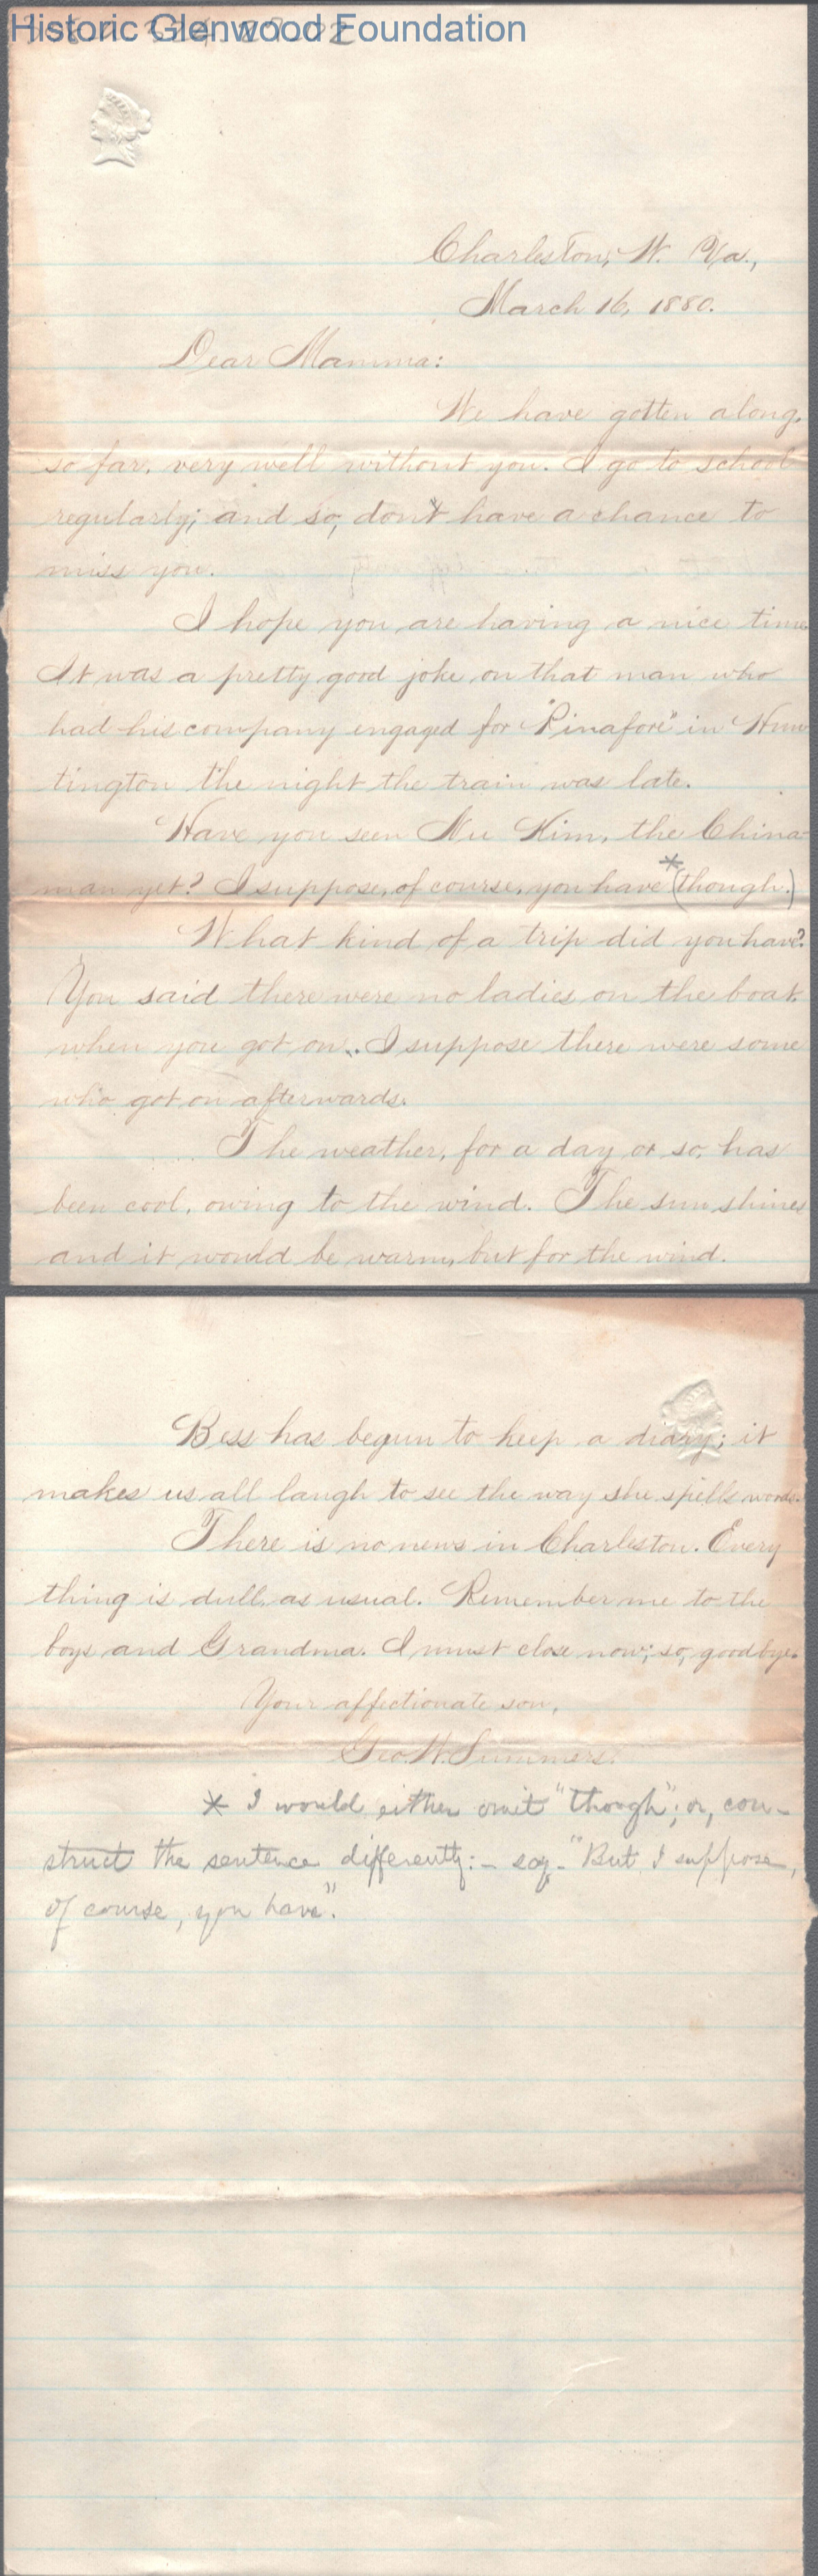 Historic Glenwood Foundation
Charleston, W. Va.,
March 16, 1880.
Dear Mamma:
We have gotten along,
so far, very well without you. I go to school
regularly; and so, don't have a chance to
miss you.
I hope you are having a nice time.
It was a pretty good joke on that man who
had his company engaged for "Pinafore" in Hun
tington the night the train was late.
Have you seen Nu Kim, the China-
man yet? I suppose, of course, you have * (though.)
What kind of a trip did you have?
You said there were no ladies on the boat,
when you got on. I suppose there were some
who got on afterwards.
The weather, for a day or so, has
been cool, owing to the wind. The sun shines
and it would be warm, but for the wind.
Bess has begun to keep a diary; it
makes us all laugh to see the way she spells words.
There is no news in Charleston. Every
thing is dull, as usual. Remember me to the
boys and Grandma. I must close now; so, goodbye.
Your affectionate son,
Geo. W. Summers.
* I would either omit "though"; or, con-
struct the sentence differently:- say- "But I suppose,
of course, you have".